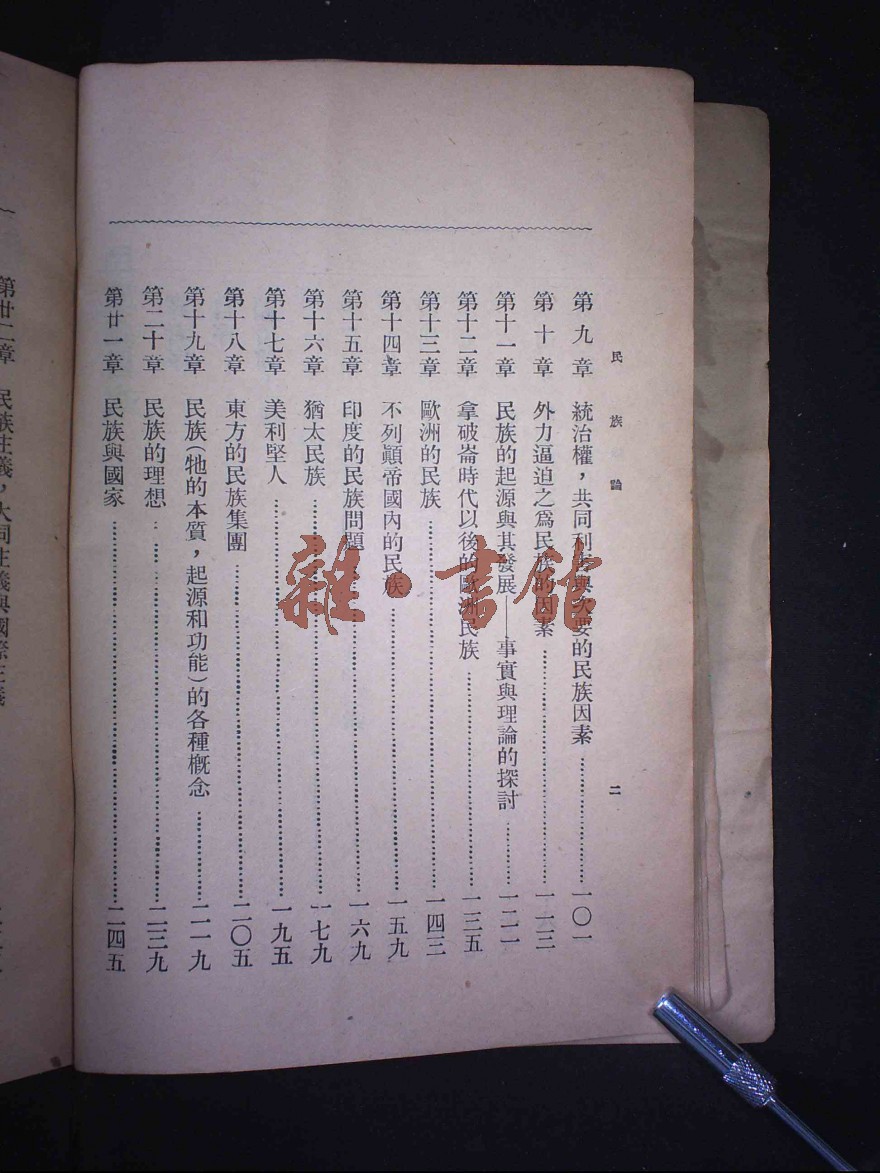 民族論
二
第九章 統治權，共同利害與次要的民族因素 一〇一
第十章 外力逼迫之爲民族的因素 一一三
第十一章 民族的起源與其發展——事實與理論的探討 一二一
第十二章 拿破崙時代以後的歐洲民族 一三五
第十三章 歐洲的民族 一四三
第十四章 不列顚帝國內的民族 一五九
第十五章 印度的民族問題 一六九
第十六章 猶太民族 一七九
第十七章 美利堅人 一九五
第十八章 東方的民族集團 二〇五
第十九章 民族（牠的本質，起源和功能）的各種槪念 二一九
第二十章 民族的理想 二三九
第廿一章 民族與國家 二四五
第廿二章 民族主義，大同主義與國際主義
雜·書館